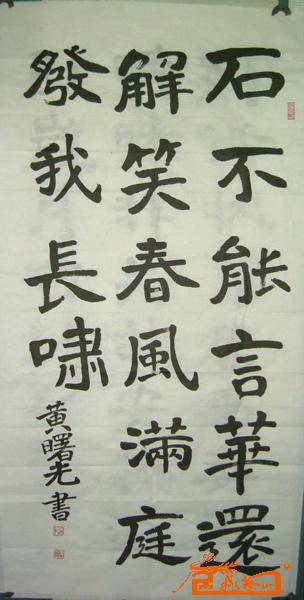 石不能言華還
解笑春風滿庭
發我長嘯
黃曙光書